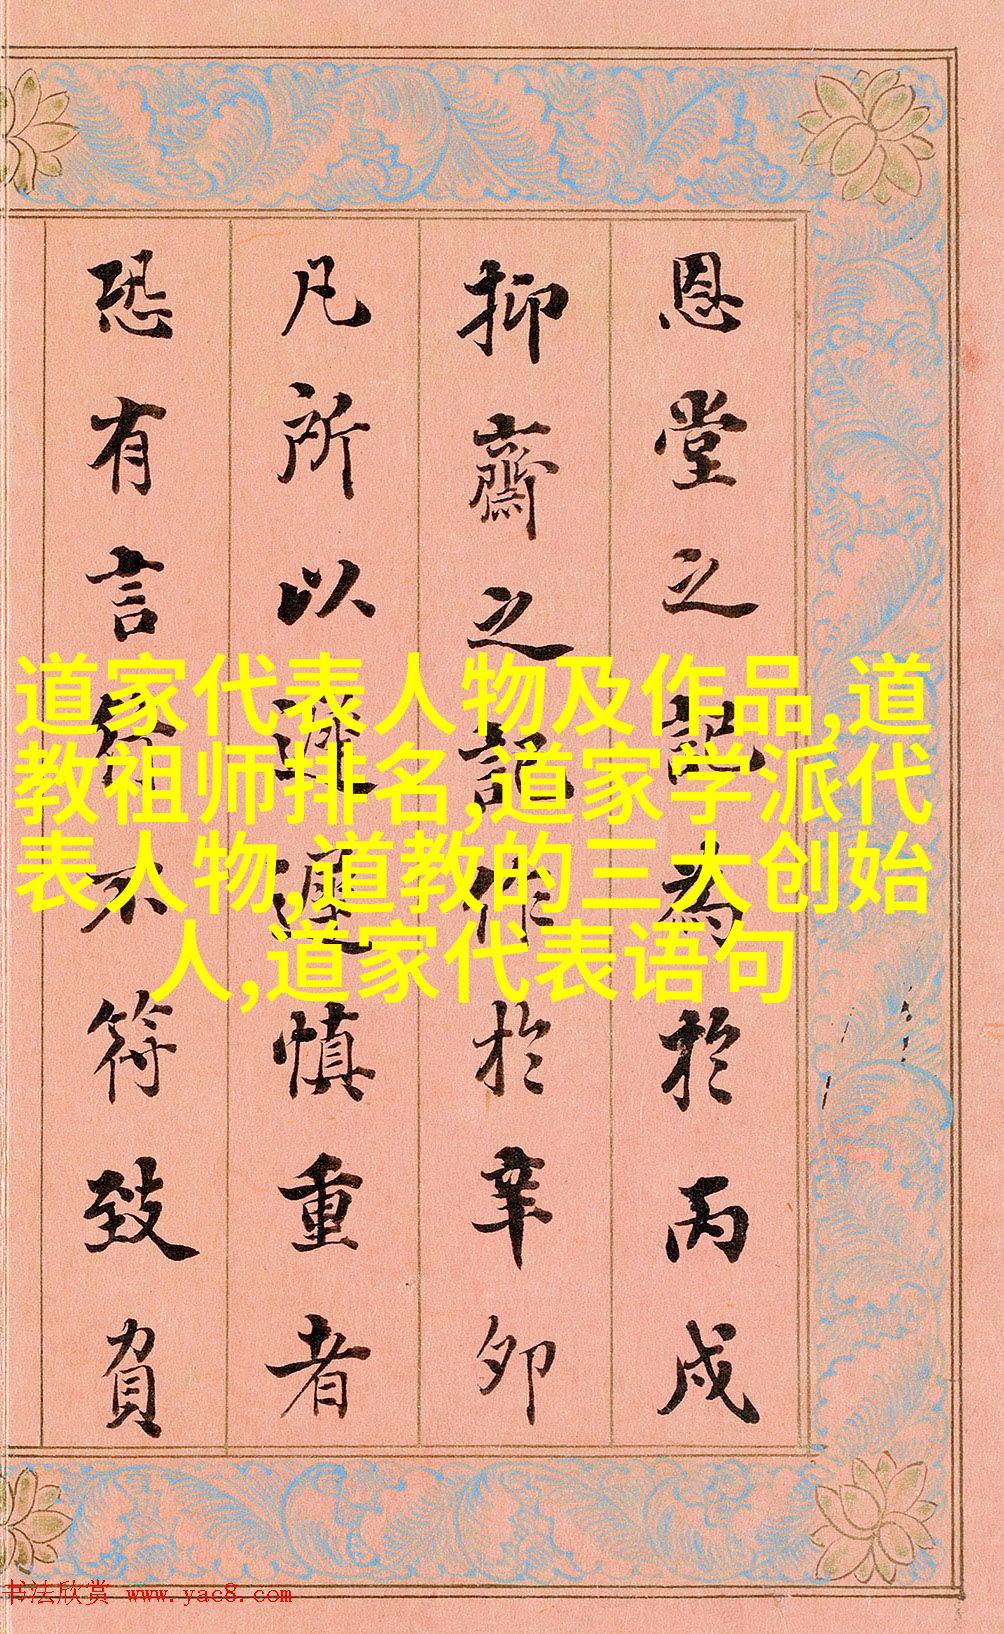 恩堂之記為於丙戌
抑齋之記作於辛卯
凡所以遲遲慎重者
恐有言行不符致負
道家代表人物及作品,道
教祖师排名,道家学派代
表人物,道教的三大创始
人,道家代表语句
书法欣赏 www.yac8.com